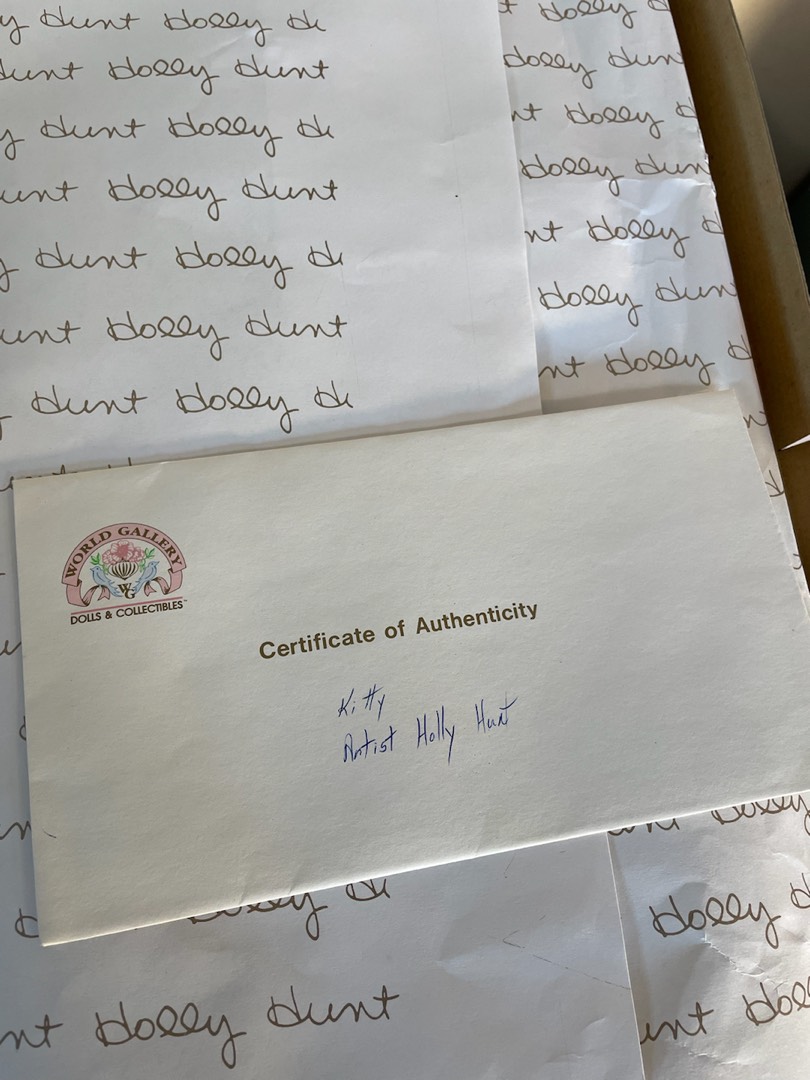 y Hunt Holly Hu
Hunt Holly Hunt
y Hunt Holly Hu
unt Holly Hunt
y Hunt Holly Hu
unt Holly Hunt
Hunt Holly Hu
t Holly H
Holly Hun
nt Holly H
Holly Hun
nt Holly H
Holly Hun
nt Holly H
WORLD GALLERY
WG
DOLLS & COLLECTIBLES™
Certificate of Authenticity
Kitty
Artist Holly Hunt
unt Holly
Holly Hu
Holly H
nt Holly Hunt
unt Hol